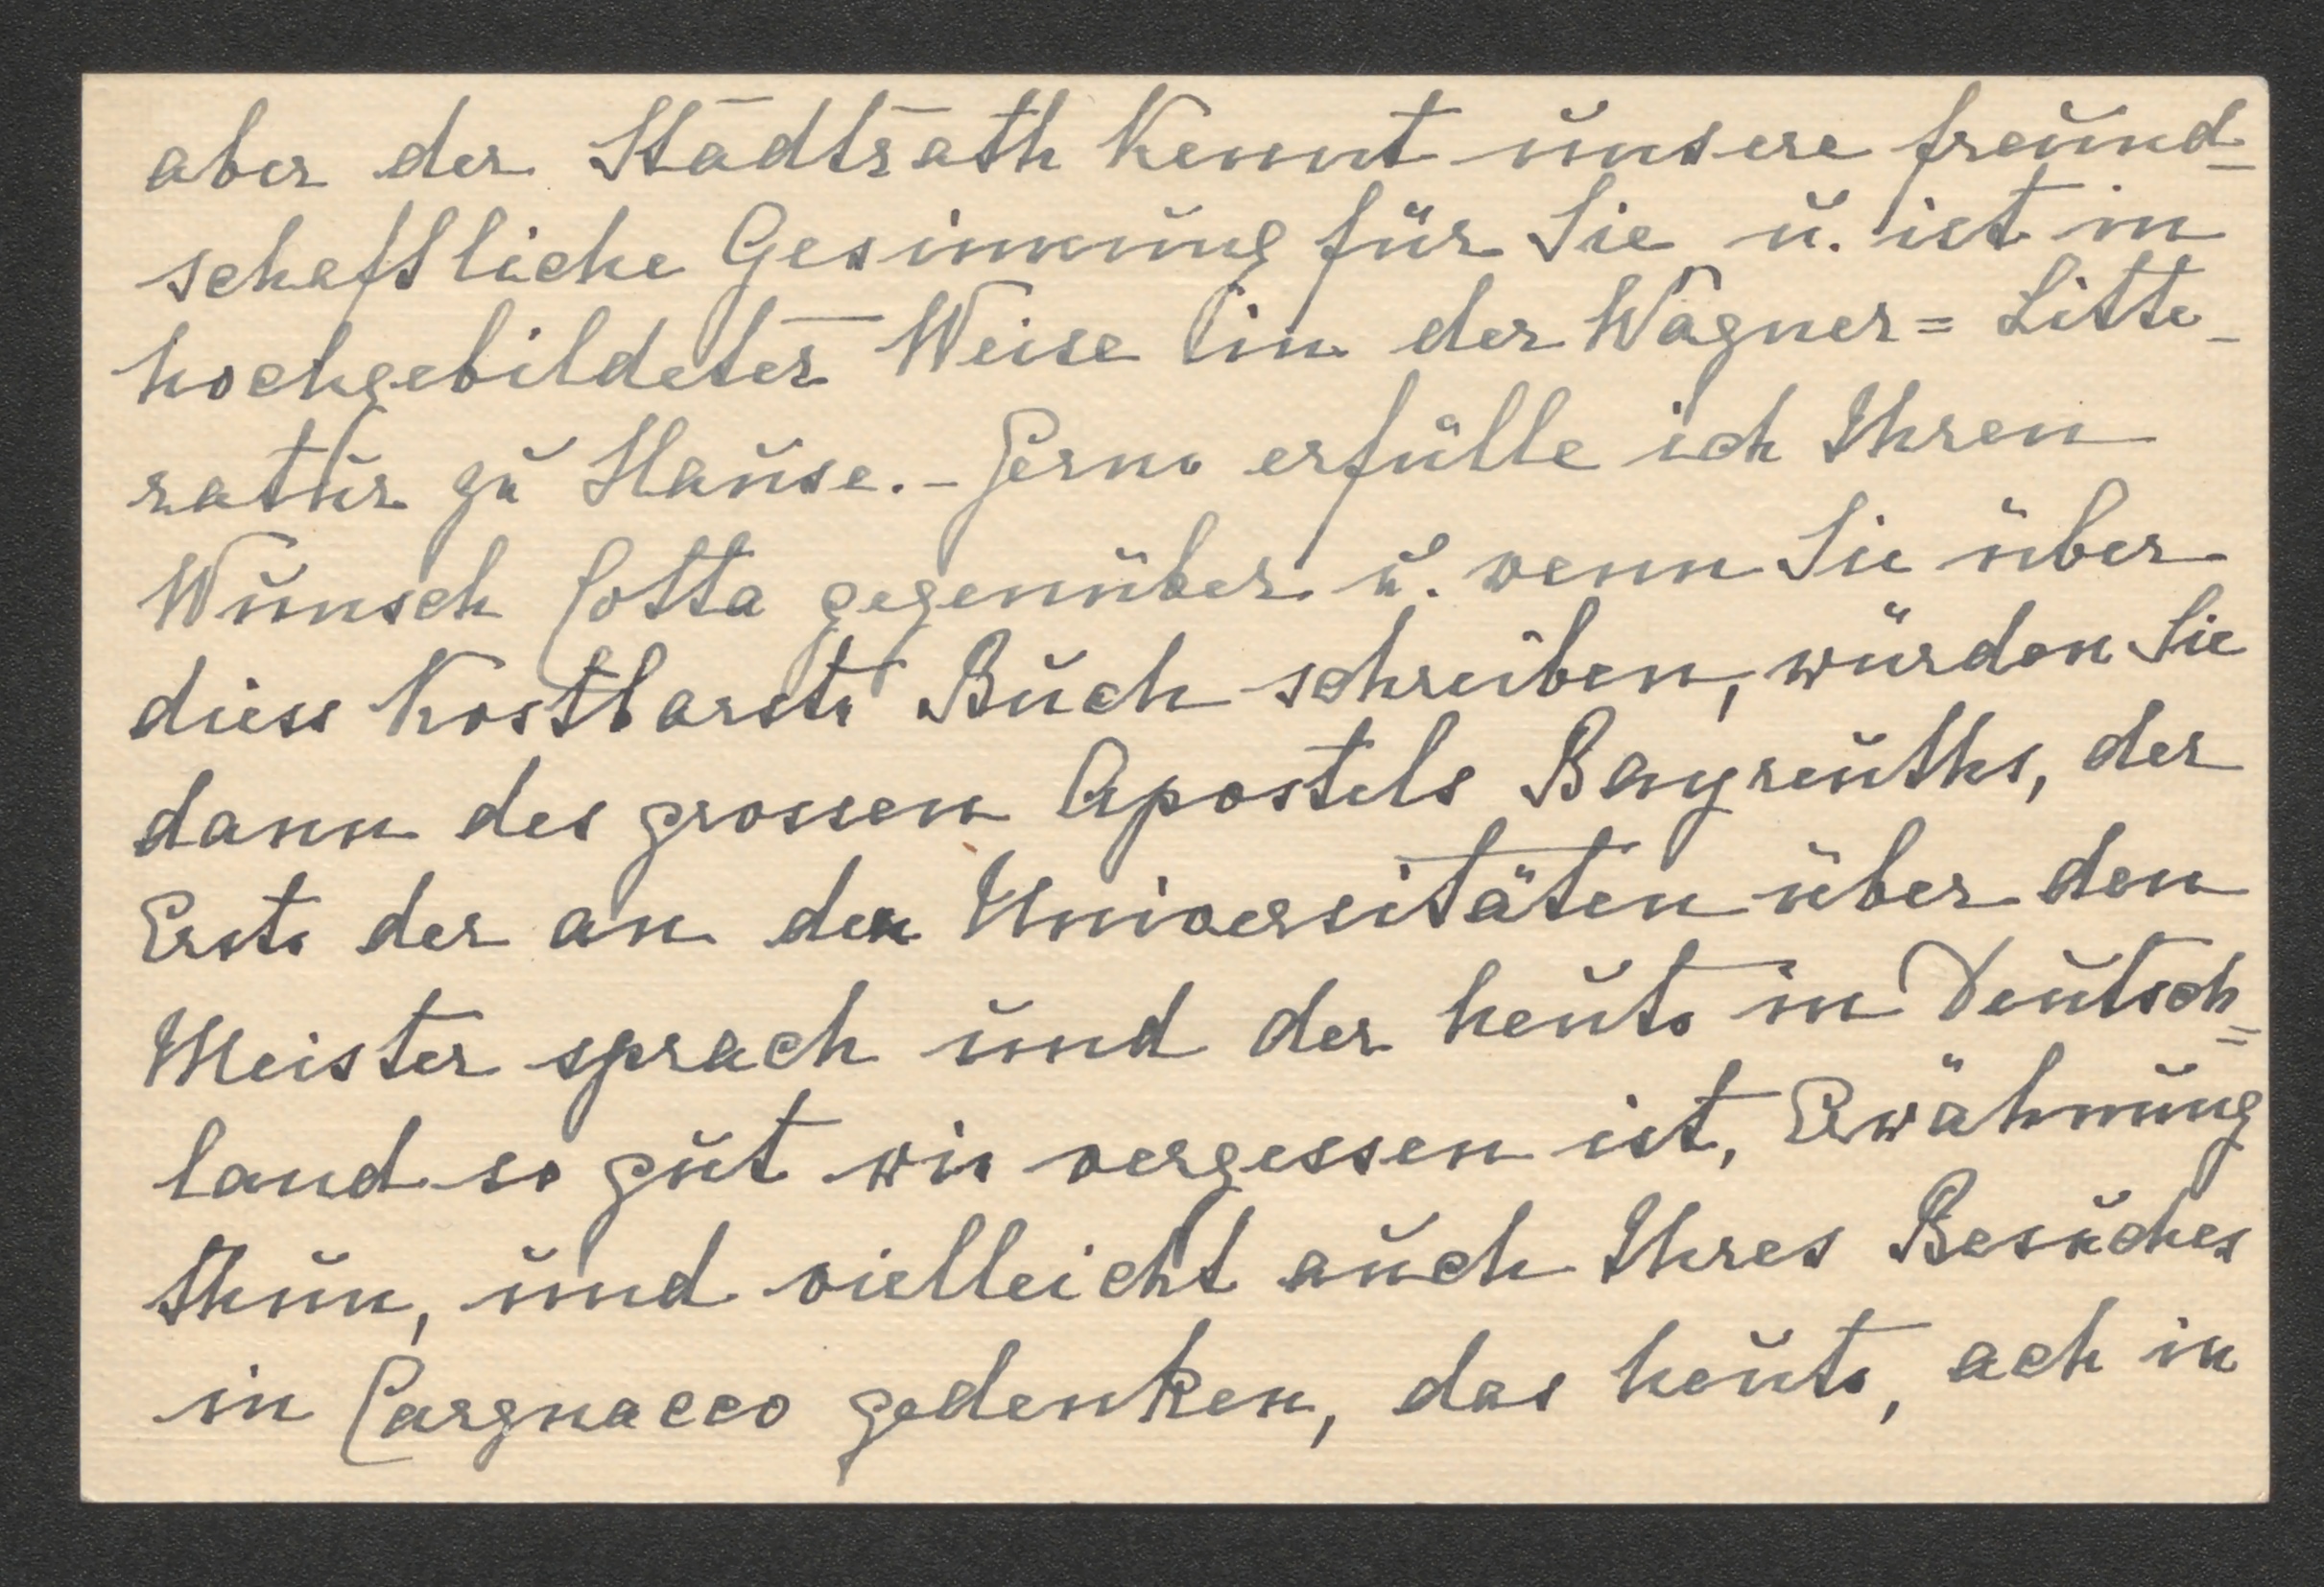 aber der Stadtrath kennt unsere freund-
schaftliche Gesinnung für Sie u. ist in
hochgebildeter Weise in der Wagner= Litte-
ratur zu Hause. - Gerne erfülle ich Ihren
Wunsch Cotta gegenüber u. wenn Sie über
diess kostbarste Buch schreiben, würden Sie
dann des grossen Apostels Bayreuths, der
Erste der an den Universitäten über den
Meister sprach und der heute in Deutsch=
land so gut wie vergessen ist, Erwähnung
thun, und vielleicht auch Ihres Besuches
in Cargnacco gedenken, das heute, ach in